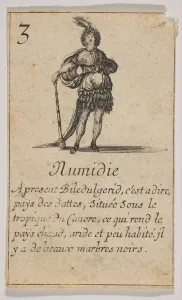 3
Numidie
A present Biledulgerid, c'est a dire,
pays des dattes, Située sous le
tropique du Cancre, ce qui rend le
pays chaud, aride et peu habité. il
y a de beaux marbres noirs.